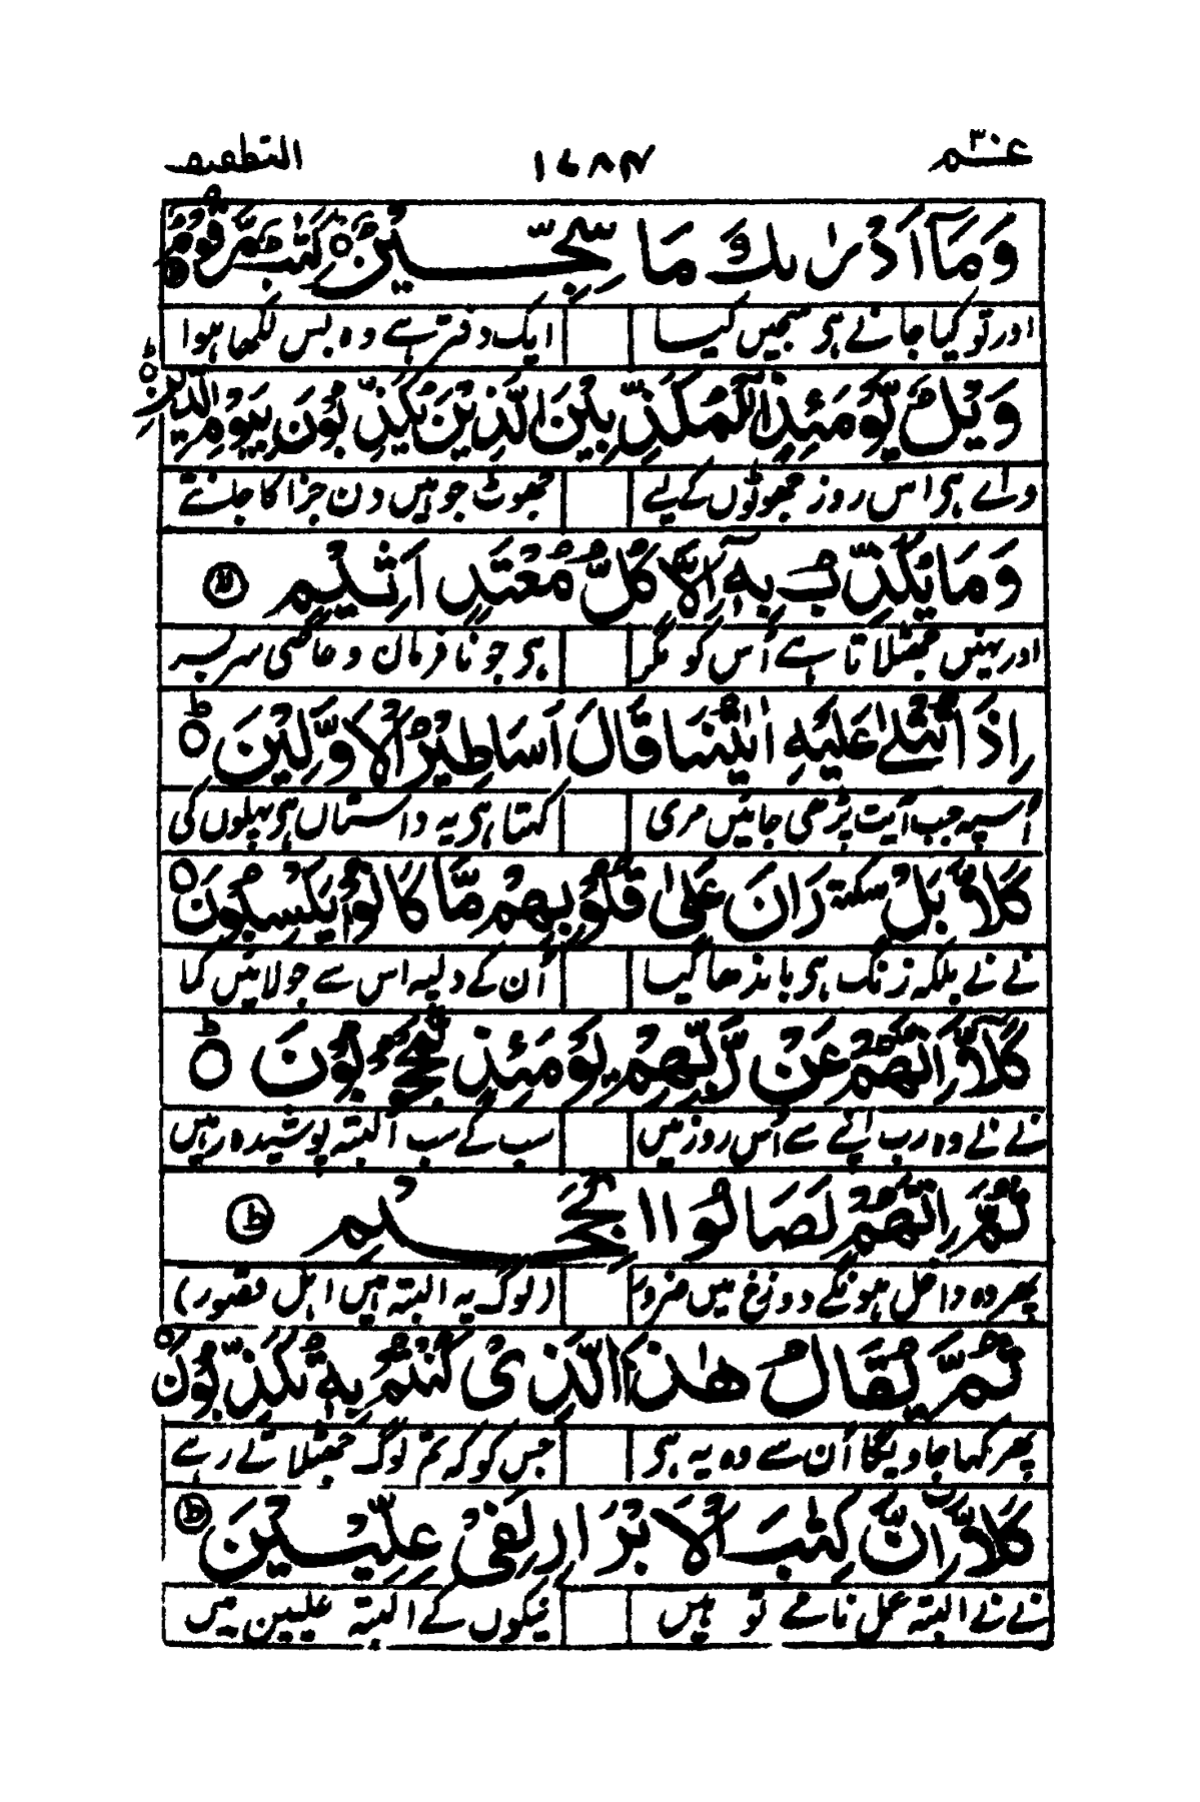 عم ۳۰ ۱۶۸۴ التطفیف
وَمَآ اَدْرٰىكَ مَا سِجِّيْنٌ ؕ كِتٰبٌ مَّرْقُوْمٌ
اور تو کیا جانے ہی سجیں کیا ایک دفتر ہے وہ بس لکھا ہوا
وَيْلٌ يَّوْمَئِذٍ لِّلْمُكَذِّبِيْنَ الَّذِيْنَ يُكَذِّبُوْنَ بِيَوْمِ الدِّيْنِ ؕ
واے ہی اس روز جھوٹوں کے لیے جھوٹ جو ہیں دن جزا کا جانتے
وَمَا يُكَذِّبُ بِهٖٓ اِلَّا كُلُّ مُعْتَدٍ اَثِيْمٍ
اور نہیں جھٹلاتا ہے اُس کو مگر ہی جو نافرمان و عاصی سربسر
اِذَا تُتْلٰى عَلَيْهِ اٰيٰتُنَا قَالَ اَسَاطِيْرُ الْاَوَّلِيْنَ ؕ
اُسپہ جب آیت پڑھی جائیں مری کہتا ہی یہ داستاں ہی پہلوں کی
كَلَّا بَلْ سكتة رَانَ عَلٰى قُلُوْبِهِمْ مَّا كَانُوْا يَكْسِبُوْنَ
نے نے بلکہ زنگ ہی باندھا گیا اُن کے دلپہ اس سے جو لائیں کما
كَلَّآ اِنَّهُمْ عَنْ رَّبِّهِمْ يَوْمَئِذٍ لَّمَحْجُوْبُوْنَ ؕ
نے نے وہ رب اپنے سے اُس روز میں سب کے سب البتہ پوشیدہ رہیں
ثُمَّ اِنَّهُمْ لَصَالُوا الْجَحِيْمِ ؕ
پھر وہ داخل ہونگے دوزخ میں ضرور (لوگ یہ البتہ ہیں اہل قصور)
ثُمَّ يُقَالُ هٰذَا الَّذِىْ كُنْتُمْ بِهٖ تُكَذِّبُوْنَ
پھر کہا جاویگا اُن سے وہ یہ ہی جس کو کہ تم لوگ جھٹلاتے رہے
كَلَّآ اِنَّ كِتٰبَ الْاَبْرَارِ لَفِىْ عِلِّيِّيْنَ ؕ
نے نے البتہ عمل نامے تو ہیں نیکوں کے البتہ علیین میں